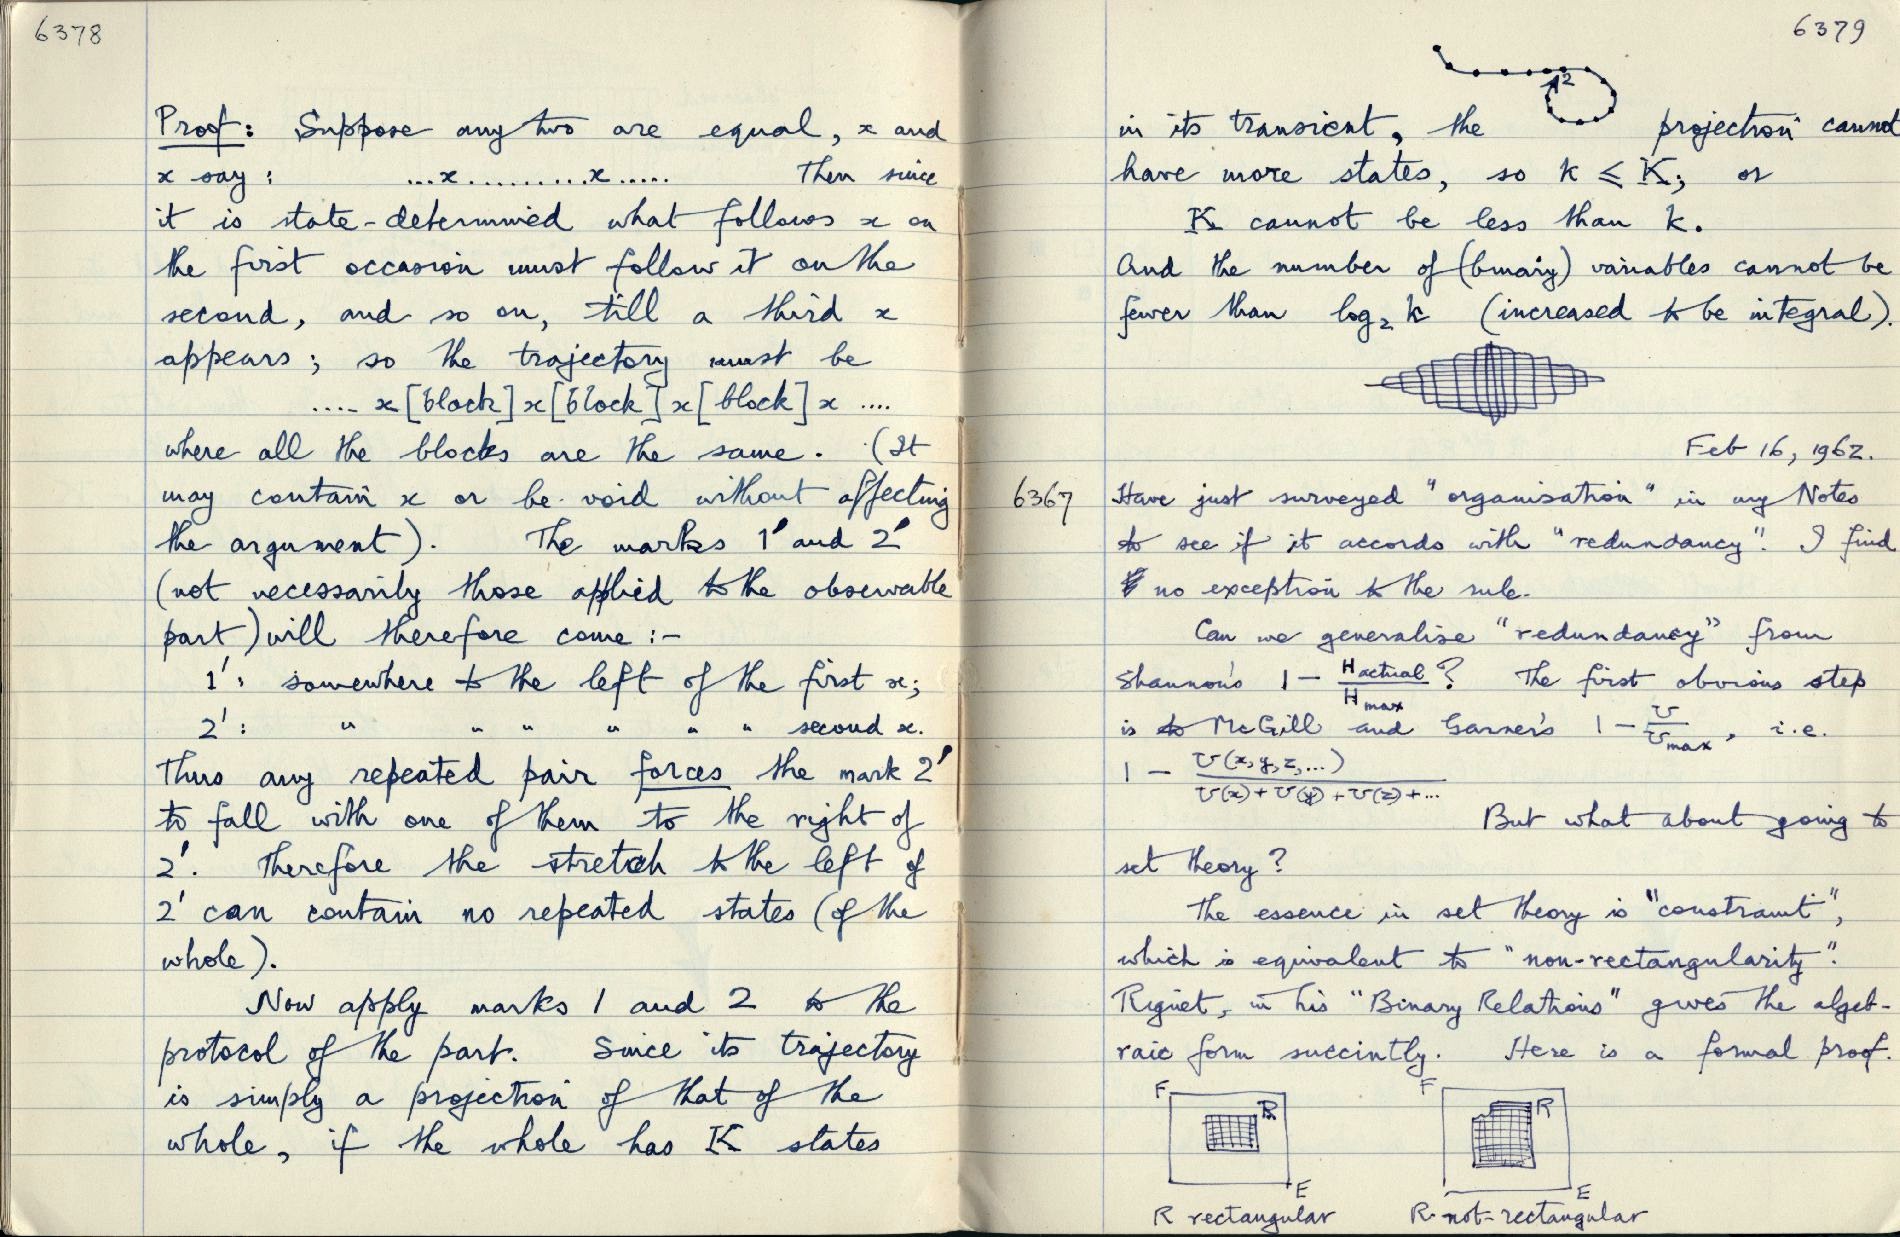 6378
Proof: Suppose any two are equal, x and
x say: ...x..........x..... Then since
it is state-determined what follows x on
the first occasion must follow it on the
second, and so on, till a third x
appears; so the trajectory must be
.... x [block] x [block] x [block] x ....
where all the blocks are the same. (It
may contain x or be void without affecting
the argument). The marks 1' and 2'
(not necessarily those applied to the observable
part) will therefore come :-
1': somewhere to the left of the first x;
2': " " " " " " second x.
Thus any repeated pair forces the mark 2'
to fall with one of them to the right of
2'. Therefore the stretch to the left of
2' can contain no repeated states (of the
whole).
Now apply marks 1 and 2 to the
protocol of the part. Since its trajectory
is simply a projection of that of the
whole, if the whole has K states
6379
2
in its transient, the projection cannot
have more states, so k ≤ K; or
K cannot be less than k.
And the number of (binary) variables cannot be
fewer than log₂ k (increased to be integral).
Feb 16, 1962.
6367 Have just surveyed "organisation" in my Notes
to see if it accords with "redundancy". I find
no exception to the rule.
Can we generalise "redundancy" from
Shannon's 1 - H actual / H max ? The first obvious step
is to McGill and Garner's 1 - U / U max, i.e.
1 - U(x, y, z, ...) / U(x) + U(y) + U(z) + ...
But what about going to
set theory?
The essence in set theory is "constraint",
which is equivalent to "non-rectangularity".
Riguet, in his "Binary Relations" gives the algeb-
raic form succintly. Here is a formal proof.
F R E
F R E
R rectangular R not-rectangular